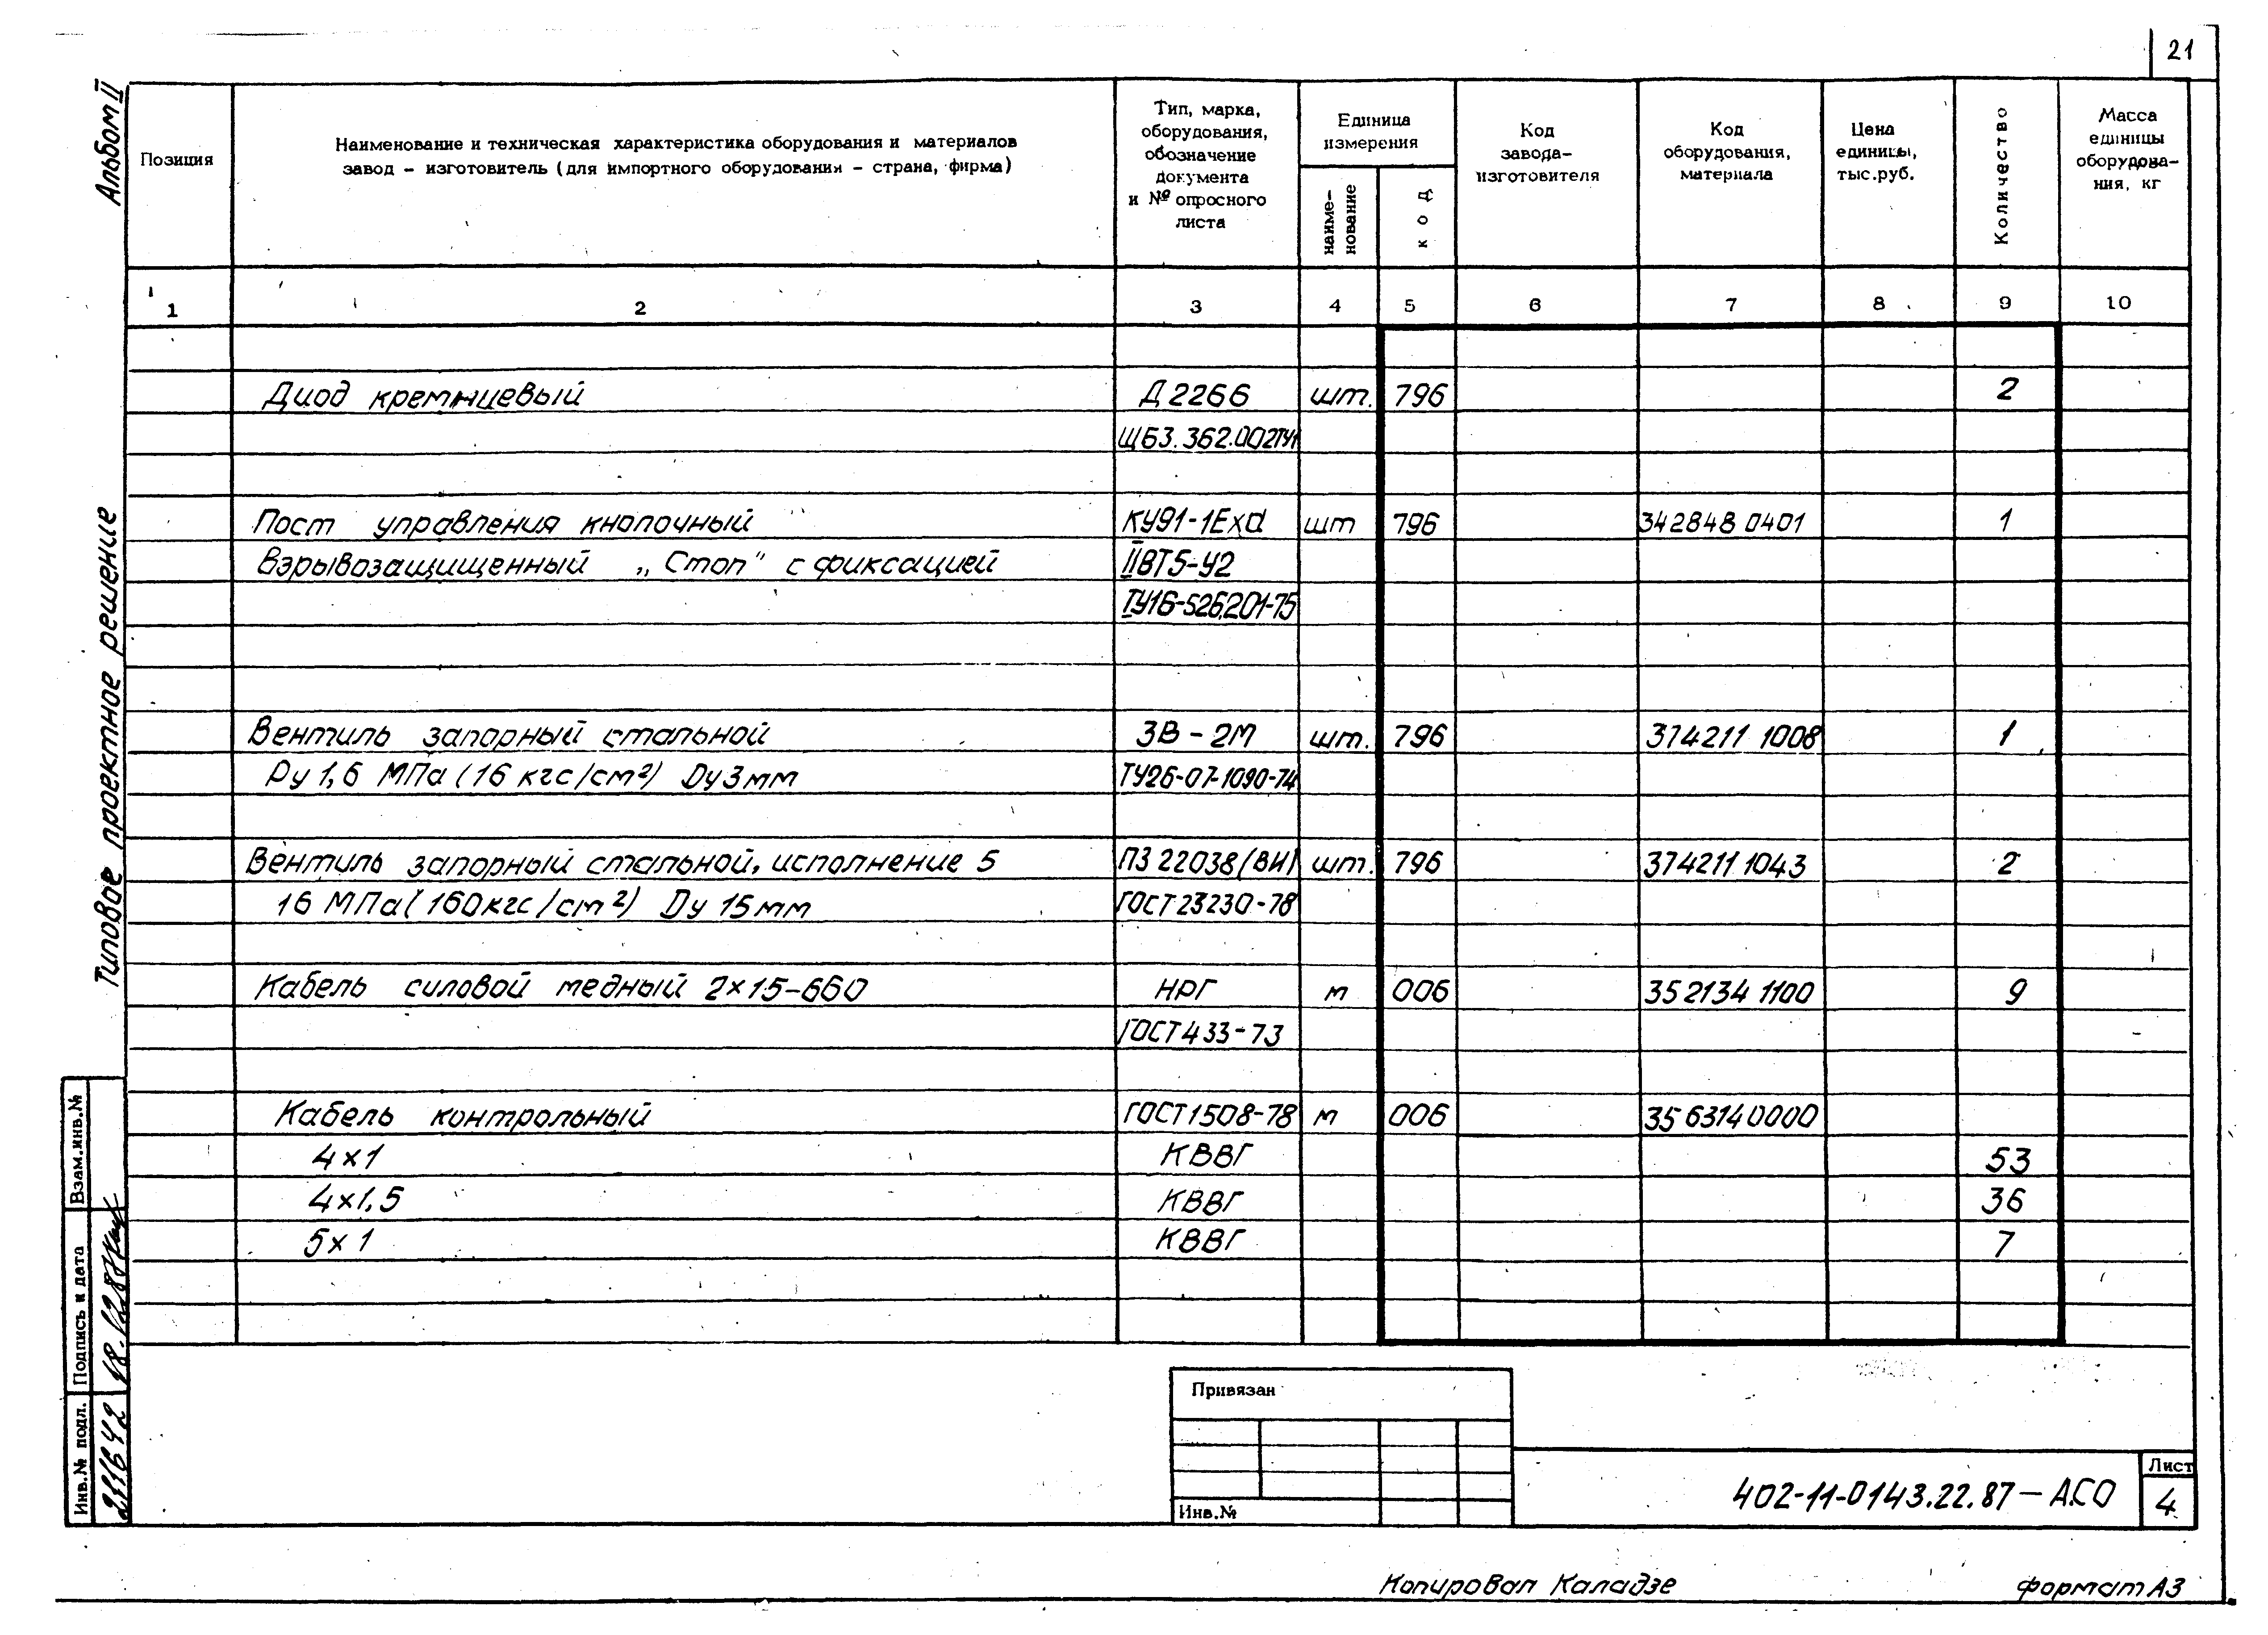 21
Альбом II
Типовое проектное решение
Позиция
Наименование и техническая характеристика оборудования и материалов
завод – изготовитель (для импортного оборудования – страна, фирма)
Тип, марка,
оборудования,
обозначение
документа
и № опросного
листа
Единица
измерения
наиме-
нование
код
Код
завода-
изготовителя
Код
оборудования,
материала
Цена
единицы,
тыс.руб.
Количество
Масса
единицы
оборудова-
ния, кг
1 2 3 4 5 6 7 8 9 10
Диод кремниевый Д2266 шт. 796 2
ЩБ3.362.002ТУ1
Пост управления кнопочный КУ91-1Exd шт 796 342848 0401 1
взрывозащищенный „Стоп" с фиксацией IIВТ5-У2
ТУ16-526.201-75
Вентиль запорный стальной ЗВ-2М шт. 796 374211 1008 1
Ру 1,6 МПа (16 кгс/см²) Dу 3мм ТУ26-07-1090-74
Вентиль запорный стальной, исполнение 5 ПЗ 22038(ВИ) шт. 796 374211 1043 2
16 МПа (160кгс/см²) Dу 15мм ГОСТ 23230-78
Кабель силовой медный 2×15-660 НРГ м 006 352134 1100 9
ГОСТ 433-73
Кабель контрольный ГОСТ 1508-78 м 006 356314 0000
4×1 КВВГ 53
4×1,5 КВВГ 36
5×1 КВВГ 7
Взам.инв.№
Подпись и дата
Инв.№ подл.
Привязан
Инв.№
402-11-0143.22.87-АСО
Лист
4
Копировал Каладзе
формат А3